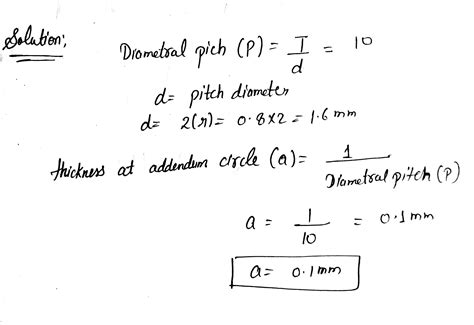 Solution:,
Diometral pich (P) = T/d = 10
d= pitch diometer
d= 2(r) = 0.8x2 = 1.6 mm
thickness at addendum circle (a) = 1/Diometral pitch (P)
a = 1/10 = 0.1 mm
a= 0.1mm